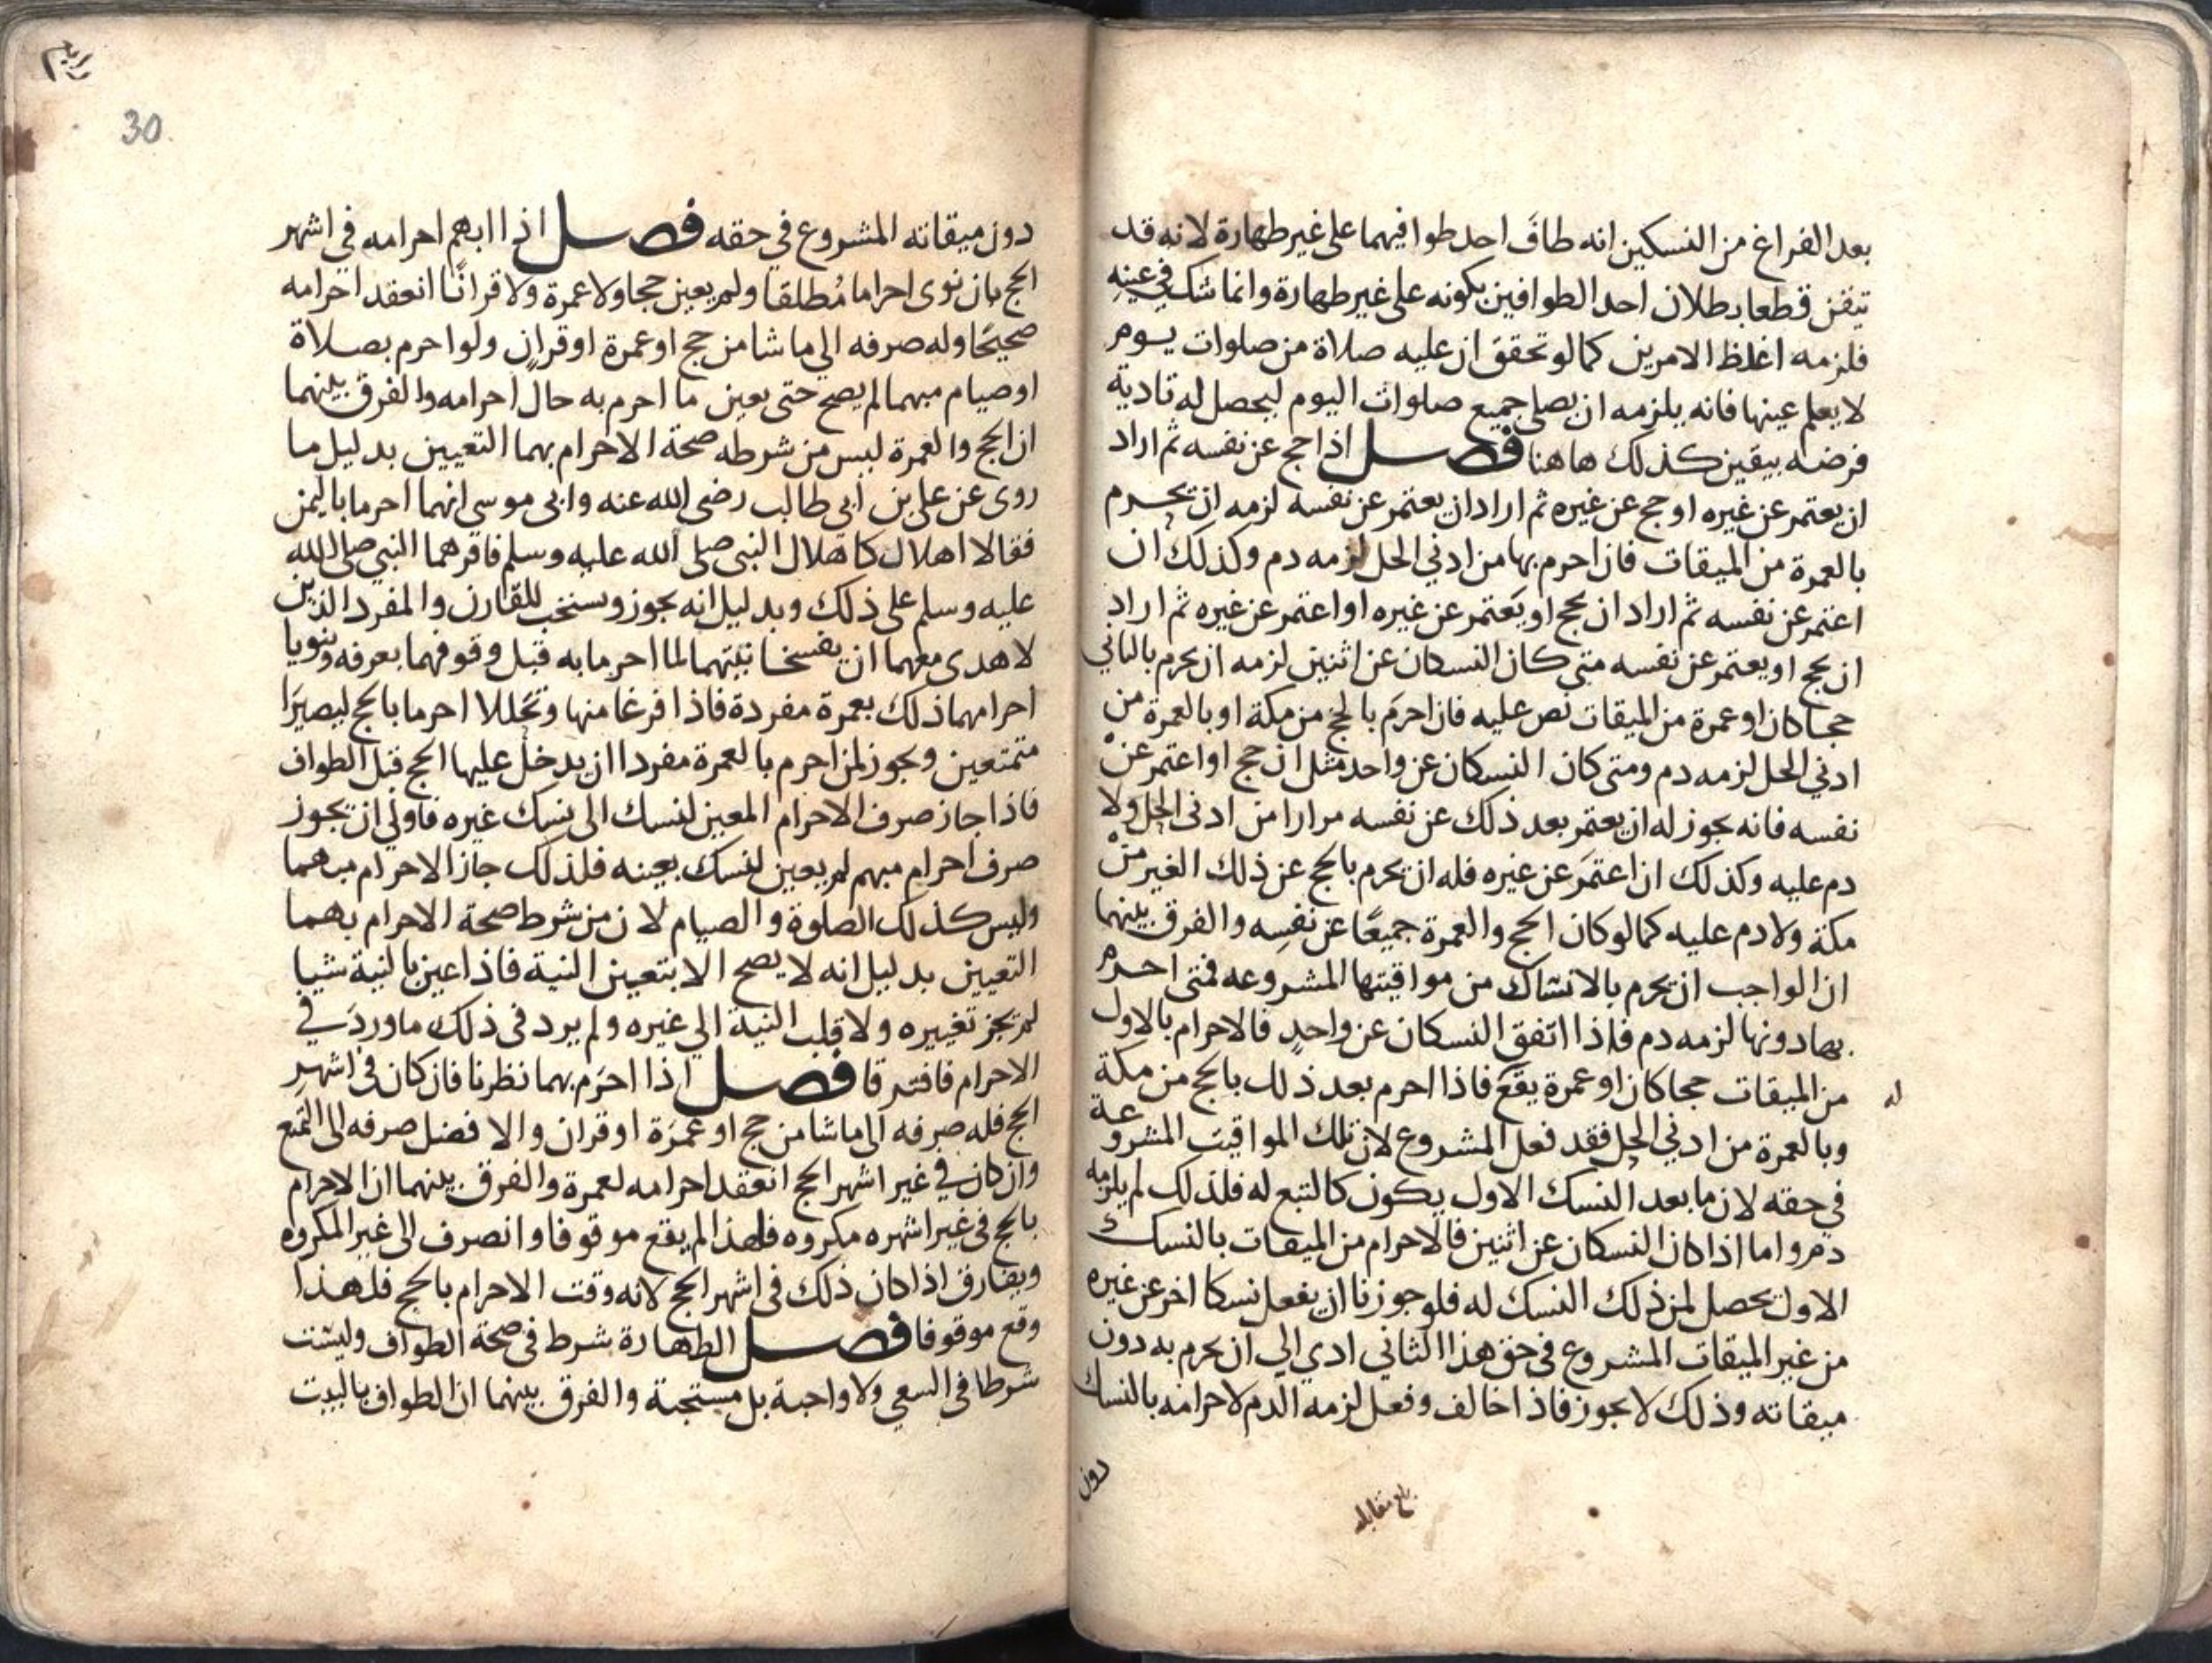 بعد الفراغ من النسكين انه طافَ احد طوافيهما على غير طهارة لانه قد
تيقن قطعا بطلان احد الطوافين بكونه على غير طهارة وانما شك في عينه
فلزمه اغلظ الامرين كما لو تحقق ان عليه صلاة من صلوات يوم
لا يعلم عينها فانه يلزمه ان يصلي جميع صلوات اليوم ليحصل له تادية
فرضه بيقين كذلك هاهنا فصل اذا حج عن نفسه ثم اراد
ان يعتمر عن غيره او حج عن غيره ثم اراد ان يعتمر عن نفسه لزمه ان يحرم
بالعمرة من الميقات فان احرم بها من ادني الحل لزمه دم وكذلك ان
اعتمر عن نفسه ثم اراد ان يحج او يَعتمر عن غيره او اعتمر عن غيره ثم اراد
ان يحج او يعتمر عن نفسه متى كان النسكان عن اثنين لزمه ان يحرم بالثاني
حجا كان او عمرة من الميقات نص عليه فان احرمَ بالحج من مكة او بالعمرة من
ادني الحل لزمه دم ومتى كان النسكان عن واحد مثل ان حج او اعتمر عن
نفسه فانه يجوز له ان يعتمر بعد ذلك عن نفسه مرارا من ادنى الحل ولا
دم عليه وكذلك ان اعتمَر عن غيره فله ان يحرم بالحج عن ذلك الغير من
مكة ولا دم عليه كما لو كان الحج والعمرة جميعًا عن نفسِه والفرق بينهما
ان الواجب ان يحرم بالانساك من مواقيتها المشروعه فمتى احرم
بها دونها لزمه دم فاذا اتفق النسكان عن واحدٍ فالاحرام بالاول
من الميقات حجا كان او عمرة يقع فاذا احرم بعد ذلك بالحج من مكة
له
وبالعمرة من ادني الحل فقد فعل المشروع لان تلك المواقيت المشروعة
في حقه لان ما بعد النسك الاول يكون كالتبع له فلذلك لم يلزمه
دم واما اذا كان النسكان عن اثنين فالاحرام من الميقات بالنسك
الاول يحصل لمن ذلك النسك له فلو جوزنا ان يفعل نسكا اخر عن غيره
من غير الميقات المشروع في حق هذا الثاني ادي الي ان يحرم به دون
ميقاته وذلك لا يجوز فاذا خالف وفعل لزمه الدم لاحرامه بالنسك
دون
بلغ مقابلة
30
دون ميقاته المشروع في حقه فصل اذا ابهم احرامه في اشهر
الحج بان نوى احراما مُطلقا ولم يعين حجا ولا عمرة ولا قرانًا انعقد احرامه
صحيحًا وله صرفه الي ما شا من حج او عمرة او قران ولو احرم بصلاة
او صيام مبهما لم يصح حتى يعين ما احرم به حال احرامه والفرق بينهما
ان الحج والعمرة ليس من شرطه صحة الاحرام بهما التعيين بدليل ما
روى عن علي بن أبي طالب رضى الله عنه وابى موسى انهما احرما باليمن
فقالا اهلال كاهلال النبي صلى الله عليه وسلم فاقرهما النبي صلى الله
عليه وسلم على ذلك وبدليل انه يجوز ويستحب للقارن والمفرد الذين
لا هدى معهما ان يفسخا نيتهما لما احرما به قبل وقوفهما بعرفه وينويا
احرامهما ذلك بعمرة مفردة فاذا فرغا منها وتحللا احرما بالحج ليصيرَا
متمتعين ويجوز لمن احرم بالعمرة مفردا ان يدخل عليها الحج قبل الطواف
فاذا جاز صرف الاحرام المعين لنسك الى نسك غيره فاولي ان يجوز
صرف احرام مبهم لم يعين لنسك بعينه فلذلك جاز الاحرام مبهما
وليس كذلك الصلوة والصيام لان من شرط صحة الاحرام بهما
التعيين بدليل انه لا يصح الا بتعين النية فاذا عين بالنية شيا
لم يجز تغييره ولا قلب النية الي غيره ولم يرد فى ذلك ما وردَ في
الاحرام فافترقا فصل اذا احرَم بهما نظرنا فان كان فى اشهرِ
الحج فله صرفه الى ما شا من حج او عمرَة او قران والافضل صرفه الى التمتع
وان كان في غير اشهر الحج انعقد احرامه لعمرة والفرق بينهما ان الاحرام
بالحج فى غير اشهره مكروه فلهذا لم يقع موقوفا وانصرف الى غير المكروه
ويفارق اذا كان ذلك فى اشهر الحج لانه وقت الاحرام بالحج فلهذا
وقع موقوفا فصل الطهارة شرط فى صحة الطواف وليست
شرطا فى السعي ولا واجبة بل مستحبة والفرق بينهما ان الطواف بالبيت